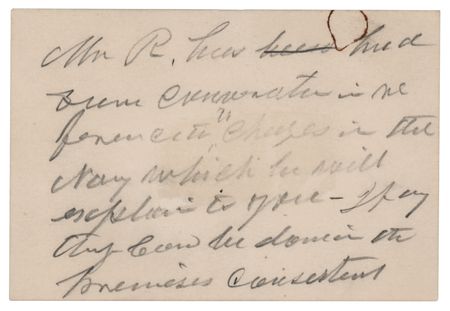 Mr R. has been had
some conversation in re
ference to changes in the
Navy which he will
explain to you - If any
thing can be done in the
premises consistent